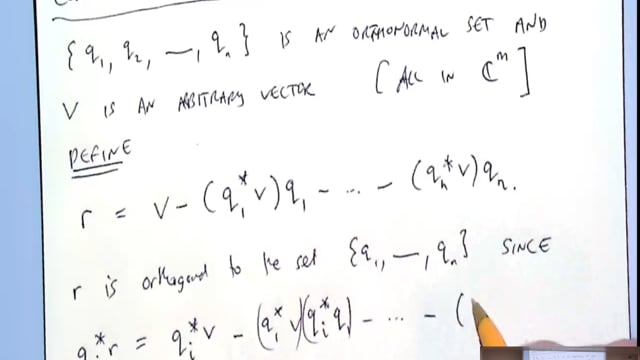 {q₁, q₂, —, qₙ} IS AN ORTHONORMAL SET AND
V IS AN ARBITRARY VECTOR [ALL IN ℂᵐ]
DEFINE
r = V − (q₁*v)q₁ − ... − (qₙ*v)qₙ.
r is orthogonal to the set {q₁, —, qₙ} SINCE
qᵢ*r = qᵢ*v − (q₁*v)(qᵢ*q₁) − ... − (